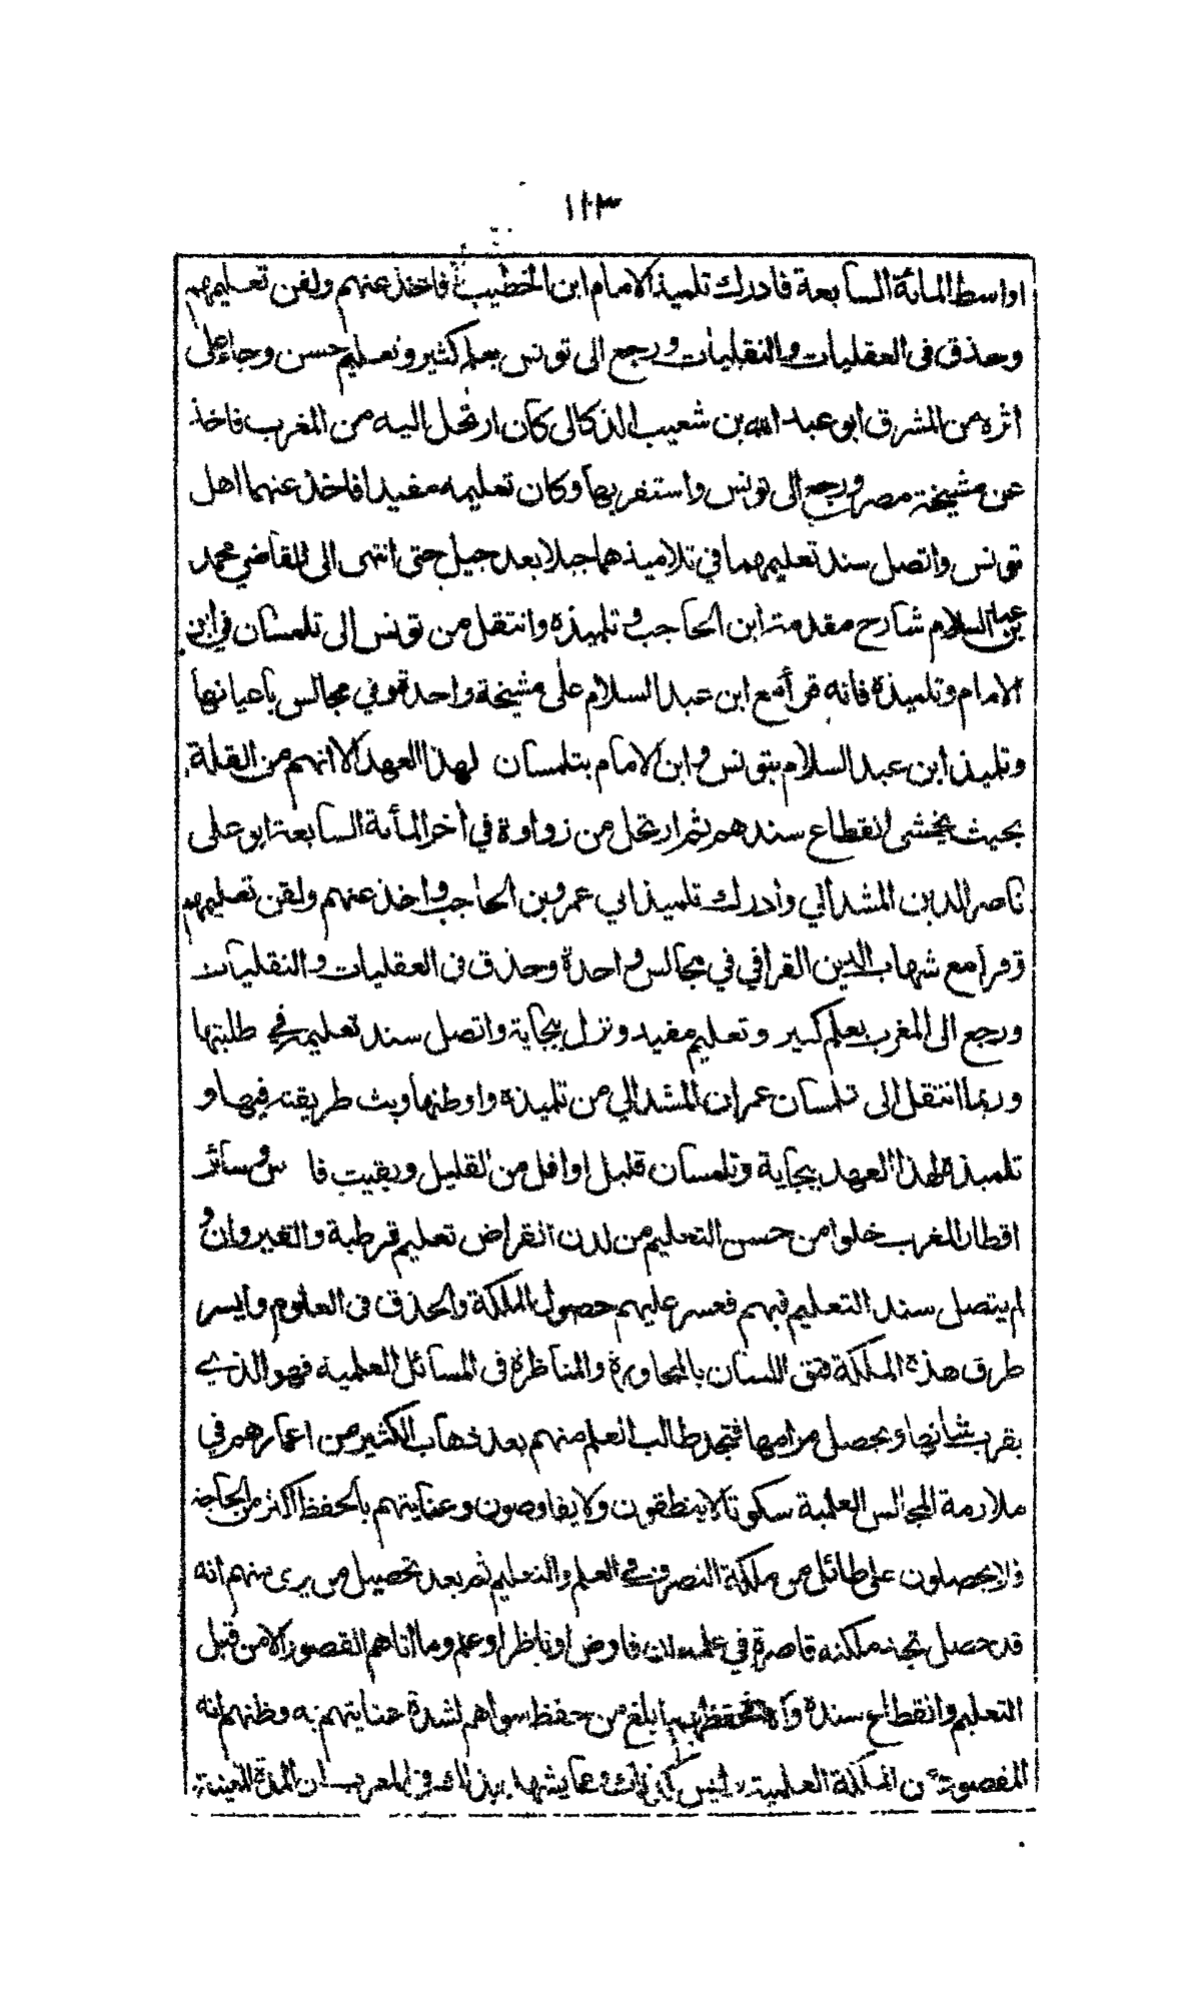 ١١٣
اواسط المائة السابعة فادرك تلميذ الامام ابن الخطيب فاخذ عنهم ولقن تعليمهم
وحذق فى العقليات والنقليات ورجع الى تونس بعلم كثير وتعليم حسن وجاء على
اثره من المشرق ابو عبد الله بن شعيب الدكالى كان ارتحل اليه من المغرب فاخذ
عن مشيخة مصر ورجع الى تونس واستقر بها وكان تعليمه مفيدا فاخذ عنهما اهل
تونس واتصل سند تعليمهما في تلاميذهما جيلا بعد جيل حتى انتهى الى القاضي محمد
بن عبد السلام شارح مقدمة ابن الحاجب وتلميذه وانتقل من تونس الى تلمسان في ابن
الامام وتلميذه فانه قرأ مع ابن عبد السلام على مشيخة واحدة وفي مجالس باعيانها
وتلميذ ابن عبد السلام بتونس وابن الامام بتلمسان لهذا العهد الا انهم من القلة
بحيث يخشى انقطاع سندهم ثم ارتحل من زواوة في أخر المأئة السابعة ابو على
ناصر الدين المشدالي وأدرك تلميذ ابي عمرو بن الحاجب واخذ عنهم ولقن تعليمهم
وقرأ مع شهاب الدين القرافي في مجالس واحدة وحذق فى العقليات والنقليات
ورجع الى المغرب بعلم كبير وتعليم مفيد ونزل ببجاية واتصل سند تعليمه في طلبتها
وربما انتقل الى تلمسان عمران المشدالي من تلميذه واوطنها وبث طريقته فيها و
تلميذه لهذا العهد ببجاية وتلمسان قليل او اقل من القليل وبقيت فا س وسائر
اقطار المغرب خلوا من حسن التعليم من لدن انقراض تعليم قرطبة والقيروان و
لم يتصل سند التعليم فيهم فعسر عليهم حصول الملكة والحذق فى العلوم وايسر
طرق هذه الملكة فتق اللسان بالمحاورة والمناظرة فى المسائل العلمية فهو الذي
يقرب شانها ويحصل مرامها فتجد طالب العلم منهم بعد ذهاب الكثير من اعمارهم في
ملازمة المجالس العلمية سكوتا لا ينطقون ولا يفاوضون وعنايتهم بالحفظ اكثر من الحاجة
فلا يحصلون على طائل من ملكة التصرف في العلم والتعليم ثم بعد تحصيل من يرى منهم انه
قد حصل تجد ملكته قاصرة في علمه ان فاوض او ناظر او علم وما اتاهم القصور الا من قبل
التعليم وانقطاع سنده والا فحفظهم ابلغ من حفظ سواهم لشدة عنايتهم به وظنهم انه
المقصود من الملكة العلمية وليس كذلك ومما يشهد بذلك في المغرب ان المدة المعينة